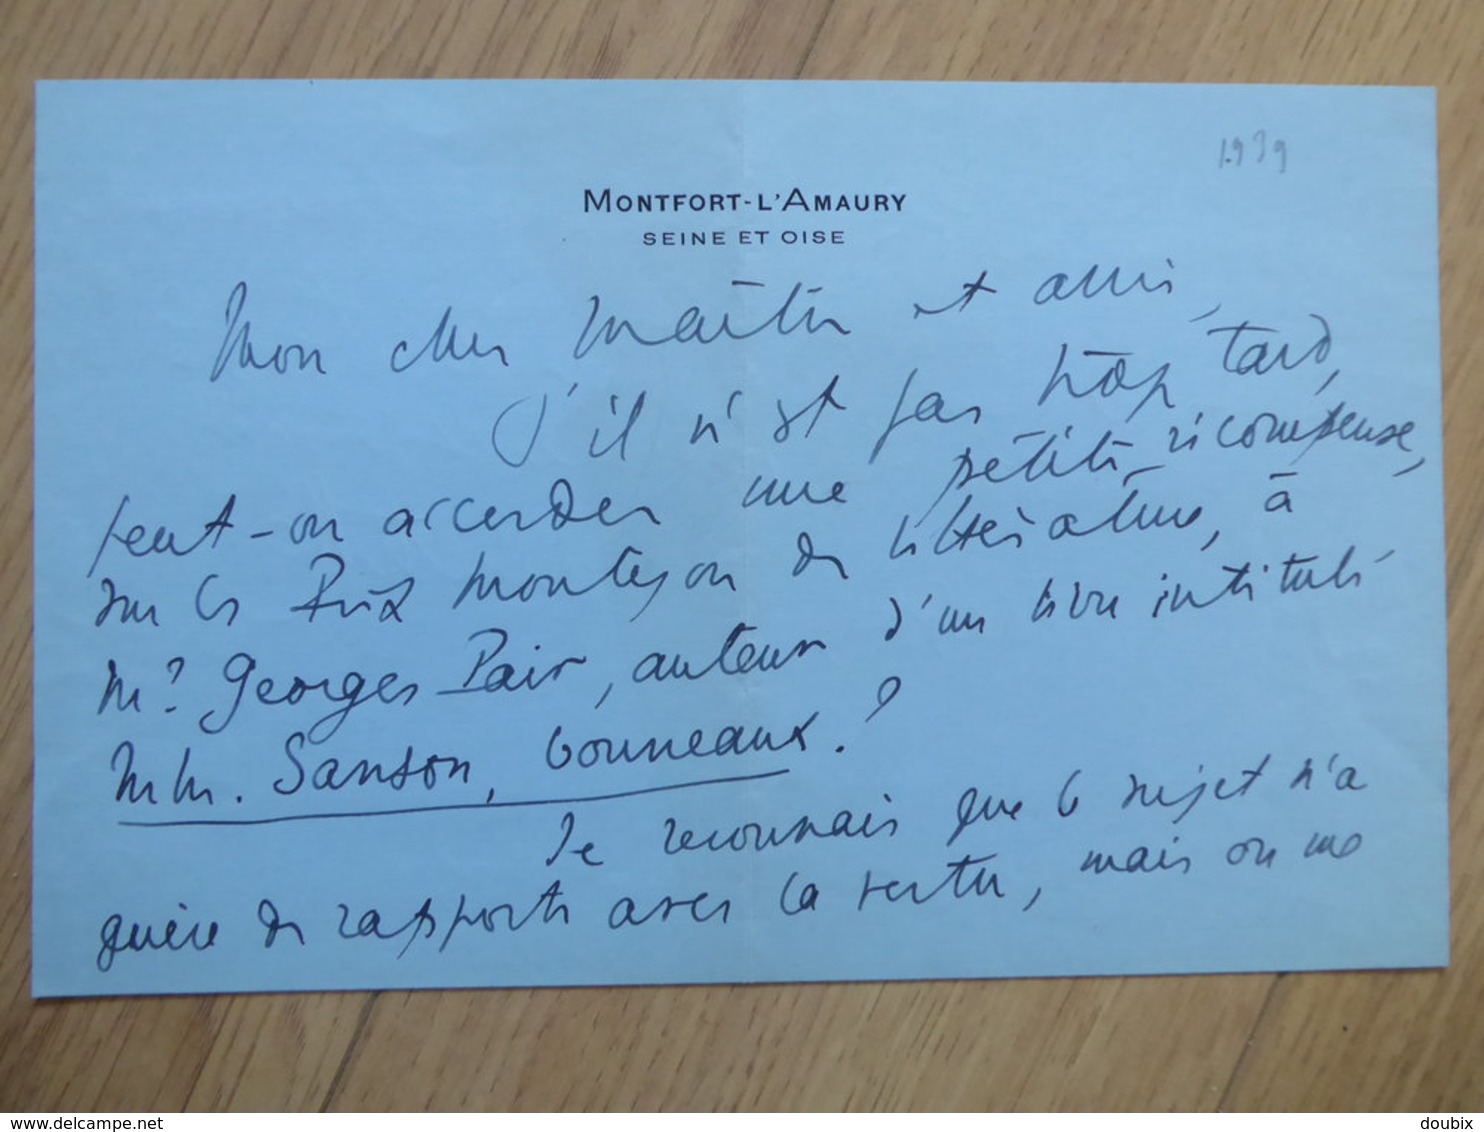 1939
MONTFORT-L'AMAURY
SEINE ET OISE
Mon cher Maître et ami,
S'il n'est pas trop tard,
peut-on accorder une petite récompense,
sur le Prix Montyon de littérature, à
Mr. Georges Pair, auteur d'un livre intitulé
MM. Sanson, bourreaux.?
Je reconnais que le sujet n'a
guère de rapports avec la vertu, mais on me
delcampe.net
doubix